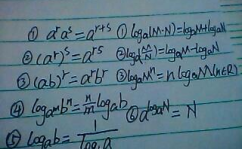 ① aʳaˢ=aʳ⁺ˢ ① logₐ(M·N)=logₐM+logₐN
② (aʳ)ˢ=aʳˢ ② logₐ(M/N)=logₐM-logₐN
③ (ab)ʳ=aʳbʳ ③ logₐMⁿ=nlogₐM(n∈R)
④ logₐᵐbⁿ=n/m logₐb ⑥ a^logₐN=N
⑤ logₐb=1/log_b a